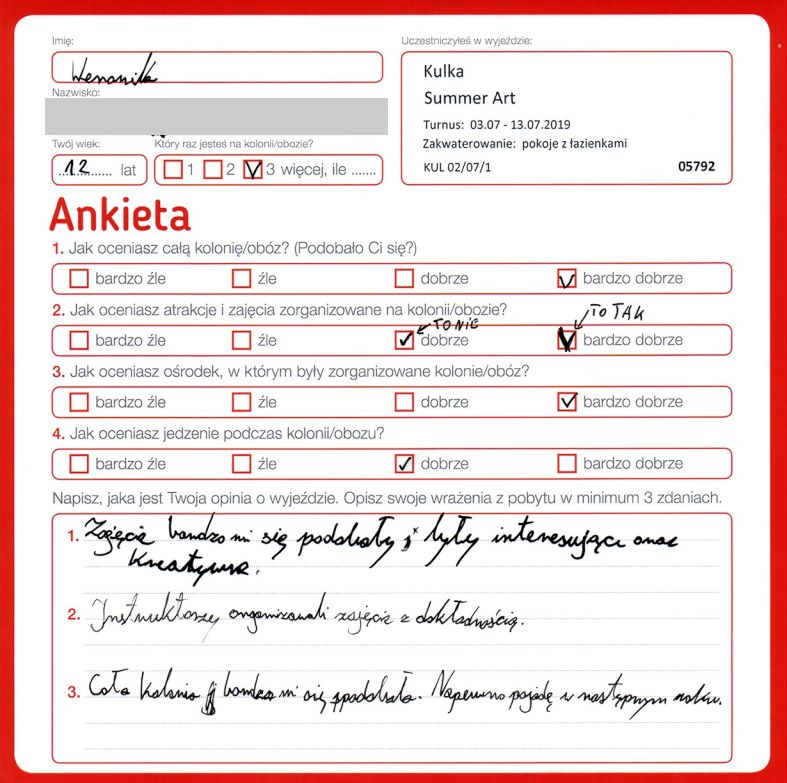 Imię:
Weronika
Uczestniczyłeś w wyjeździe:
Kulka
Summer Art
Turnus: 03.07 - 13.07.2019
Zakwaterowanie: pokoje z łazienkami
KUL 02/07/1 05792
Nazwisko:
Twój wiek:
12 lat
Który raz jesteś na kolonii/obozie?
1 2 3 więcej, ile .......
Ankieta
1. Jak oceniasz całą kolonię/obóz? (Podobało Ci się?)
bardzo źle źle dobrze bardzo dobrze
2. Jak oceniasz atrakcje i zajęcia zorganizowane na kolonii/obozie?
TO NIE TO TAK
bardzo źle źle dobrze bardzo dobrze
3. Jak oceniasz ośrodek, w którym były zorganizowane kolonie/obóz?
bardzo źle źle dobrze bardzo dobrze
4. Jak oceniasz jedzenie podczas kolonii/obozu?
bardzo źle źle dobrze bardzo dobrze
Napisz, jaka jest Twoja opinia o wyjeździe. Opisz swoje wrażenia z pobytu w minimum 3 zdaniach.
1. Zajęcia bardzo mi się podobały i były interesujące oraz
kreatywne.
2. Instruktorzy organizowali zajęcia z dokładnością.
3. Cała kolonia bardzo mi się spodobała. Napewno pojadę w następnym roku.